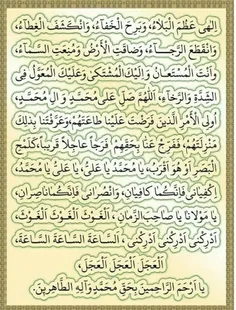 اِلٰهی عَظُمَ الْبَلاءُ، وَبَرِحَ الْخَفاءُ، وَانْكَشَفَ الْغِطاءُ،
وَانْقَطَعَ الرَّجــاءُ، وَضاقَتِ الْاَرْضُ وَمُنِعَتِ السَّماءُ،
وَاَنْتَ الْمُسْتَعانُ وَاِلَيْكَ الْمُشْتَكىٰ وَعَلَيْكَ الْمُعَوَّلُ فِی
الشِّدَّةِ وَالرَّخآءِ، اَللّٰهُمَّ صَلِّ عَلىٰ مُحَمَّدٍ وَ الِ مُحَمَّدٍ،
اُولِی الْاَمْرِ الَّذینَ فَرَضْتَ عَلَیْنا طاعَتَهُمْ، وَعَرَّفْتَنا بِذلِكَ
مَنْزِلَتَهُمْ، فَفَرِّجْ عَنّا بِحَقِّهِمْ فَرَجاً عاجِلاً قَریباً، كَلَمْحِ
الْبَصَرِ اَوْ هُوَ اَقْرَبُ، یا مُحَمَّدُ یا عَلِیُّ، یا عَلِیُّ یا مُحَمَّدُ،
اِكْفِیانی فَاِنَّكُما كافِیانِ، وَانْصُرانی فَاِنَّكُما ناصِرانِ،
یا مَوْلانا یا صاحِبَ الزَّمانِ، اَلْغَوْثَ الْغَوْثَ الْغَوْثَ،
اَدْرِكْنی اَدْرِكْنی اَدْرِكْنی، اَلسّاعَةَ السّاعَةَ السّاعَةَ،
اَلْعَجَلَ الْعَجَلَ الْعَجَلَ،
یا اَرْحَمَ الرّاحِمینَ بِحَقِّ مُحَمَّدٍ وَآلِهِ الطّاهِرینَ.